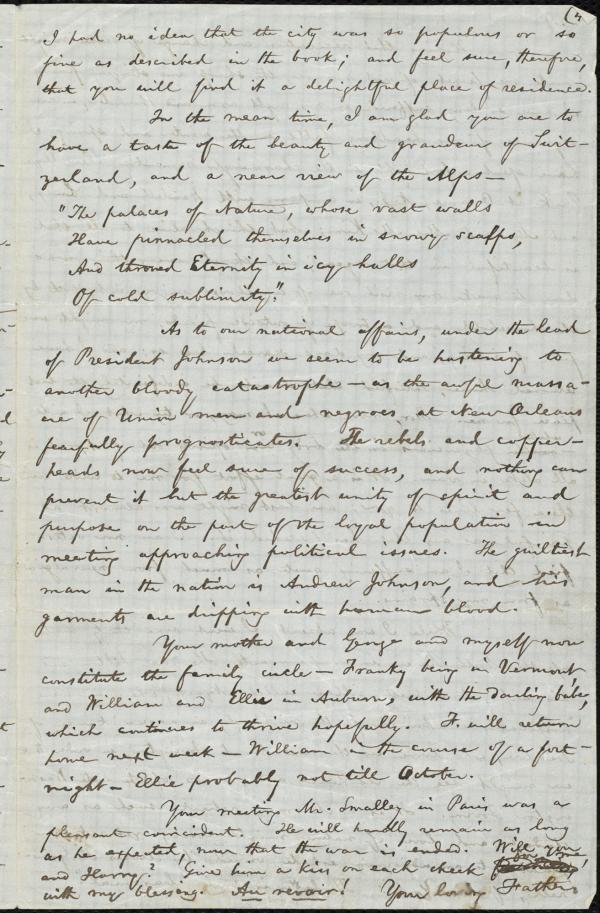 (4.
I had no idea that the city was so populous or so
fine as described in the book; and feel sure, therefore,
that you will find it a delightful place of residence.
In the mean time, I am glad you are to
have a taste of the beauty and grandeur of Swit-
zerland, and a near view of the Alps—
"The palaces of Nature, whose vast walls
Have pinnacled themselves in snowy scalps,
And throned Eternity in icy halls
Of cold sublimity."
As to our national affairs, under the lead
of President Johnson we seem to be hastening to
another bloody catastrophe—as the awful massa-
cre of Union men and negroes at New Orleans
fearfully prognosticates. The rebels and copper-
heads now feel sure of success, and nothing can
prevent it but the greatest unity of spirit and
purpose on the part of the loyal population in
meeting approaching political issues. The guiltiest
man in the nation is Andrew Johnson, and his
garments are dripping with human blood.
Your mother and George and myself now
constitute the family circle—Franky being in Vermont
and William and Ellie in Auburn, with the darling babe,
which continues to thrive hopefully. F. will return
home next week—William in the course of a fort-
night—Ellie probably not till October.
Your meeting Mr. Smalley in Paris was a
pleasant coincident. He will hardly remain as long
as he expected, now that the war is ended. Will you
and Harry? Give him a kiss on each cheek for me,
with my blessing. Au revoir! Your loving Father.